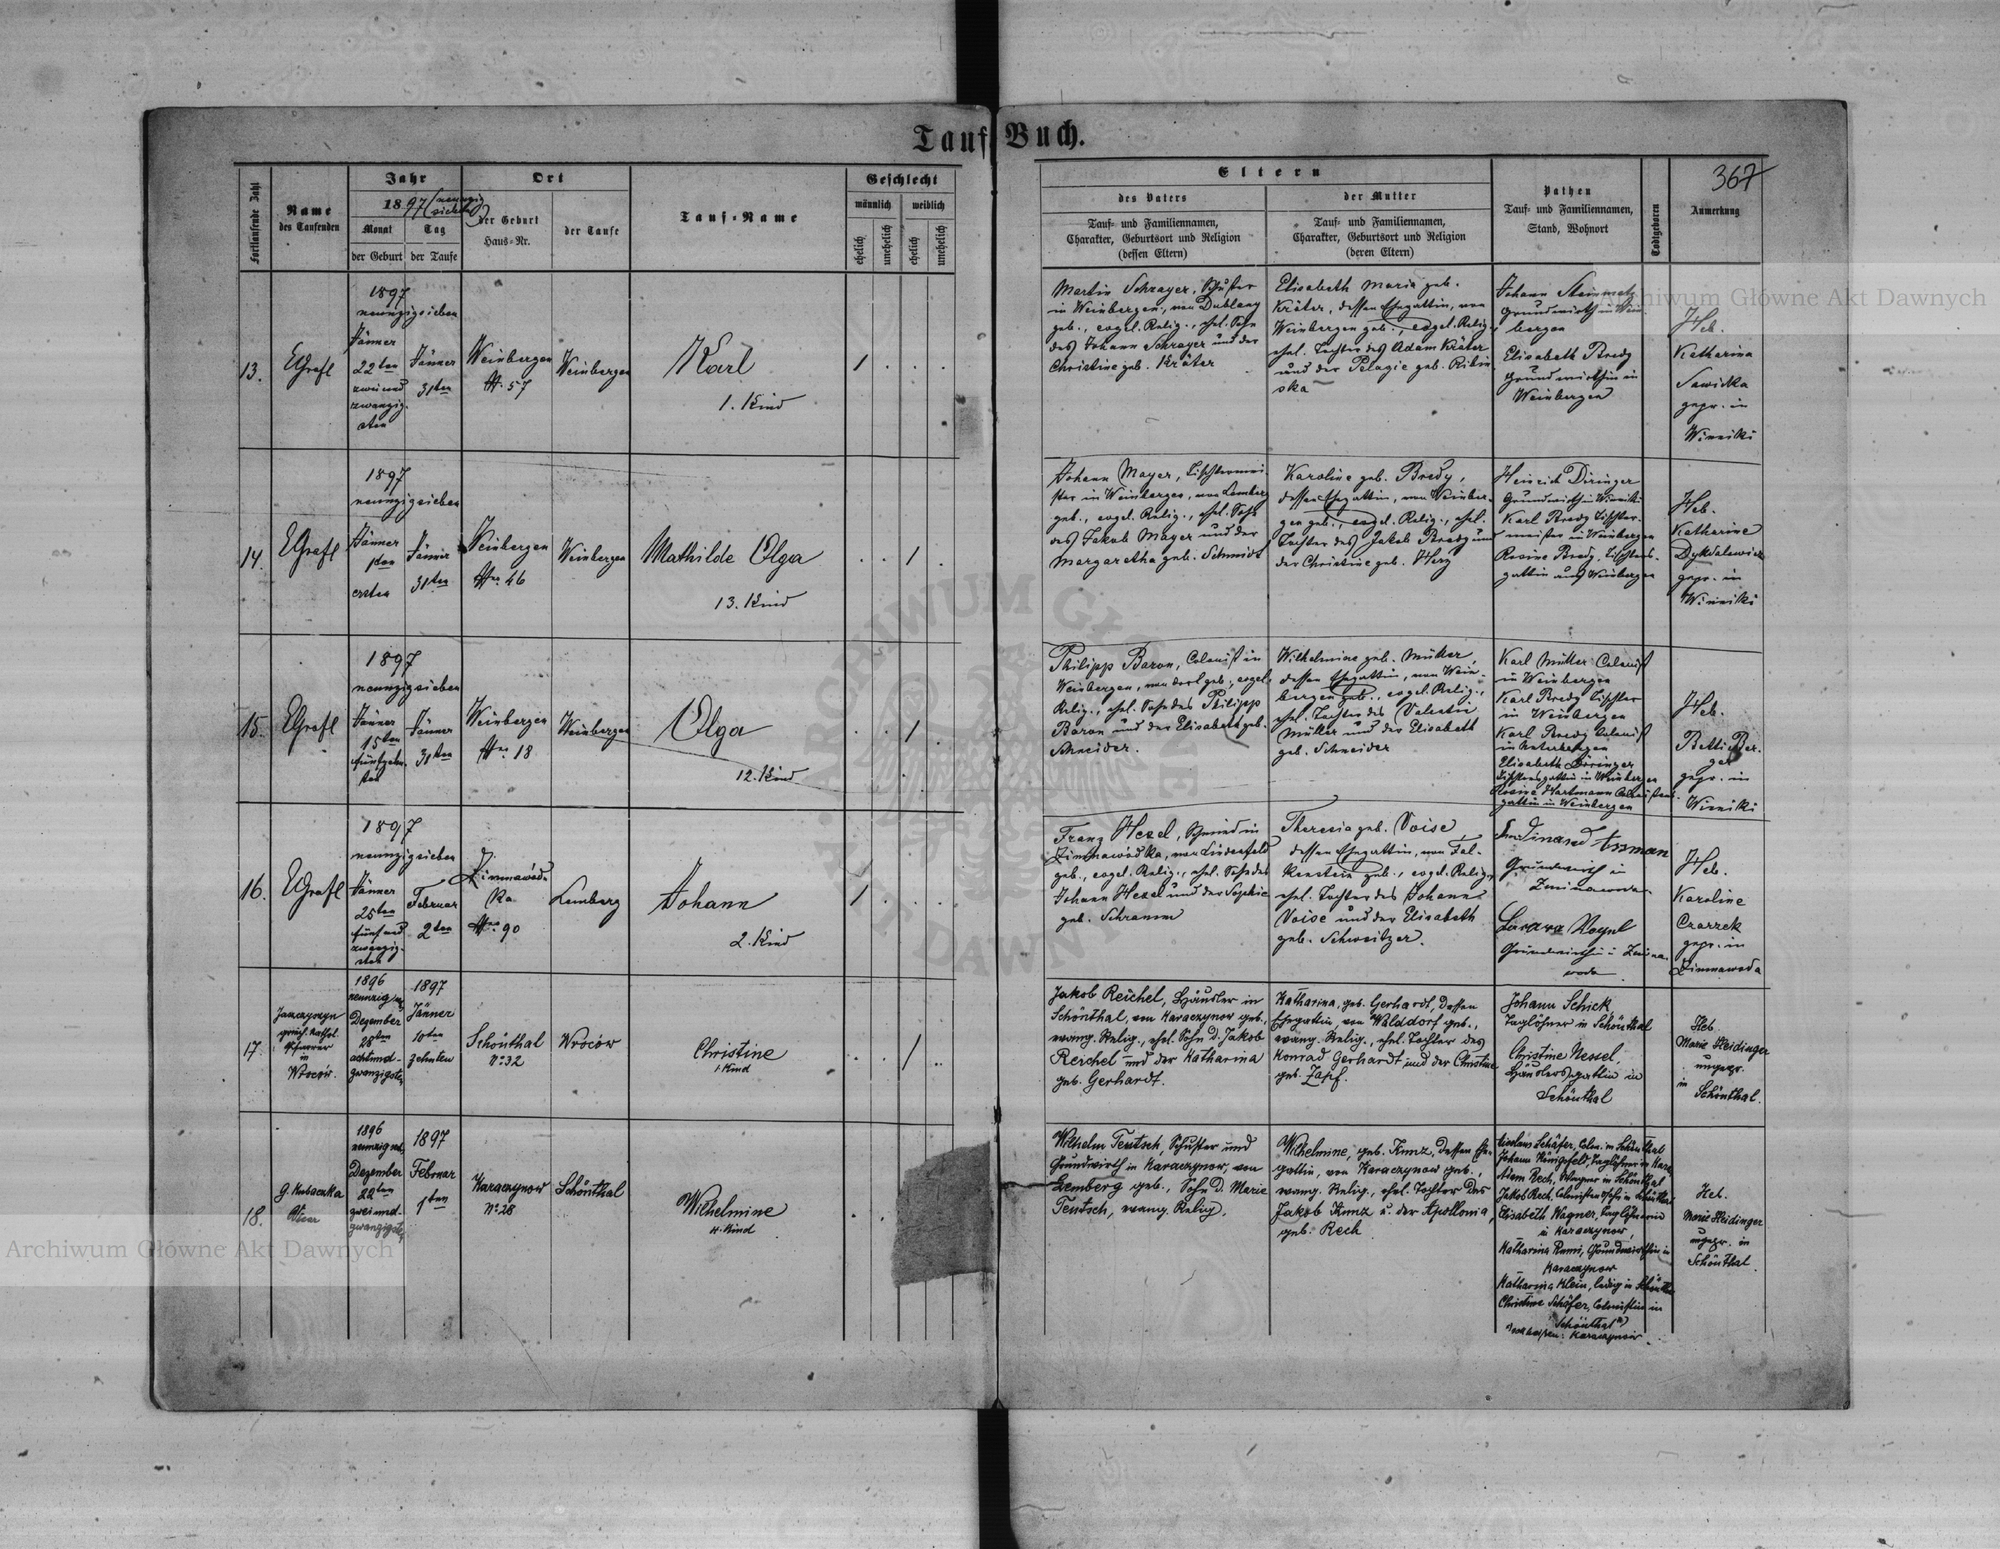 Tauf-Buch.
367
Fortlaufende Zahl
Name
des Taufenden
Jahr
1897 (neunzig
sieben)
Monat
Tag
der Geburt
der Taufe
Ort
der Geburt
Haus-Nr.
der Taufe
Tauf-Name
Geschlecht
männlich
weiblich
ehelich
unehelich
ehelich
unehelich
Eltern
des Vaters
Tauf- und Familiennamen,
Charakter, Geburtsort und Religion
(dessen Eltern)
der Mutter
Tauf- und Familiennamen,
Charakter, Geburtsort und Religion
(deren Eltern)
Pathen
Tauf- und Familiennamen,
Stand, Wohnort
Todtgeboren
Anmerkung
13.
EGrafl
1897
neunzigsieben
Jänner
22ten
zweiund
zwanzig-
sten
Jänner
31ten
Weinbergen
Nr. 57
Weinbergen
Karl
1. Kind
1
Martin Schrayer, Schuster
in Weinbergen, von Dublany
geb., evgel. Relig., ehel. Sohn
des Johann Schrayer und der
Christine geb. Kräter
Elisabeth Maria geb.
Kräter, dessen Ehegattin, von
Weinbergen geb., evgel. Relig.,
ehel. Tochter des Adam Kräter
und der Pelagie geb. Ribin
ska
Johann Steinmetz
Grundwirth in Wein-
bergen
Elisabeth Bredy
Grundwirthin in
Weinbergen
Heb.
Katharina
Sawicka
gepr. in
Winniki
14.
EGrafl
1897
neunzigsieben
Jänner
1ten
ersten
Jänner
31ten
Weinbergen
Nr. 46
Weinbergen
Mathilde Olga
13. Kind
1
Johann Mayer, Tischlermei
ster in Weinbergen, von Lemberg
geb., evgel. Relig., ehel. Sohn
des Jakob Mayer und der
Margaretha geb. Schmidt
Karoline geb. Bredy,
dessen Ehegattin, von Weinber-
gen geb., evgel. Relig., ehel.
Tochter des Jakob Bredy und
der Christine geb. Herz
Heinrich Diringer
Grundwirth in Winniki
Karl Bredy Tischler-
meister in Weinbergen
Rosine Bredy, Tischlers-
gattin aus Weinbergen
Heb.
Katharine
Dykdalewicz
gepr. in
Winniki
15.
EGrafl
1897
neunzigsieben
Jänner
15ten
fünfzehn-
ten
Jänner
31ten
Weinbergen
Nr. 18
Weinbergen
Olga
12. Kind
1
Philipp Baron, Colonist in
Weinbergen, von dort geb., evgel.
Relig., ehel. Sohn des Philipp
Baron und der Elisabeth geb.
Schneider.
Wilhelmine geb. Müller,
dessen Ehegattin, von Wein-
bergen geb., evgel. Relig.,
ehel. Tochter des Valentin
Müller und der Elisabeth
geb. Schneider
Karl Müller Colonist
in Weinbergen
Karl Bredy Tischler
in Weinbergen
Karl Bredy Colonist
in Unterbergen
Elisabeth Diringer
Tischlersgattin in Weinbergen
Rosine Hartmann Colonistens-
gattin in Weinbergen
Heb.
Betti Ber-
ger
gepr. in
Winniki
16.
EGrafl
1897
neunzigsieben
Jänner
25ten
fünfund
zwanzig-
sten
Februar
2ten
Zimnawód-
ka
Nr. 90
Lemberg
Johann
2. Kind
1
Franz Hexel, Schmied in
Zimnawódka, von Lindenfeld
geb., evgel. Relig., ehel. Sohn des
Johann Hexel und der Sophie
geb. Schramm
Theresia geb. Voise,
dessen Ehegattin, von Fal-
kenstein geb., evgel. Relig.,
ehel. Tochter des Johann
Voise und der Elisabeth
geb. Schweitzer.
Ferdinand Assman
Grundwirth in
Zimnawoda
Grundwirthin in Zimna-
woda
Heb.
Karoline
Czarzek
gepr. in
Zimnawoda
17.
griech. kathol.
Pfarrer
in
Wroców.
1896
neunzig
Dezember
28ten
achtund-
zwanzigsten
1897
Jänner
10ten
zehnten
Schönthal
No. 32
Wroców
Christine
1. Kind
1
Jakob Reichel, Häusler in
Schönthal, von Karaczynow geb.,
evang. Relig., ehel. Sohn d. Jakob
Reichel und der Katharina
geb. Gerhardt.
Katharina, geb. Gerhardt, dessen
Ehegattin, von Walddorf geb.,
evang. Relig., ehel. Tochter des
Konrad Gerhardt und der Christine
geb. Zapf.
Johann Schick
Taglöhner in Schönthal
Christine Nessel,
Häuslersgattin in
Schönthal
Heb.
Marie Heidinger
ungepr.
in
Schönthal.
18.
G. Kubaczka
Vicar
1896
neunzig
Dezember
22ten
zweiund-
zwanzigsten
1897
Februar
1ten
Karaczynow
No. 28
Schönthal
Wilhelmine
4. Kind
Wilhelm Teutsch, Schuster und
Grundwirth in Karaczynow, von
Lemberg geb., Sohn d. Marie
Teutsch, evang. Relig.
Wilhelmine, geb. Kunz, dessen Ehe-
gattin, von Karaczynow geb.,
evang. Relig., ehel. Tochter des
Jakob Kunz u. der Apollonia,
geb. Rech
Nicolaus Schäfer, Colon. in Schönthal
Johann Königsfeld, Taglöhner in Kara
Adam Rech, Wagner in Schönthal
Jakob Rech, Colonistensohn in Schönthal
Elisabeth Wagner, Taglöhnerin
in Karaczynow,
Katharina Kunz, Grundwirthin in
Karaczynow
Katharina Klein, ledig in Schönthal
Christine Schäfer, Colonistin in
Schönthal
Karaczynow
Heb.
Marie Heidinger
ungepr. in
Schönthal.
Archiwum Główne Akt Dawnych
Archiwum Główne Akt Dawnych
ARCHIWUM GŁÓWNE AKT DAWNYCH